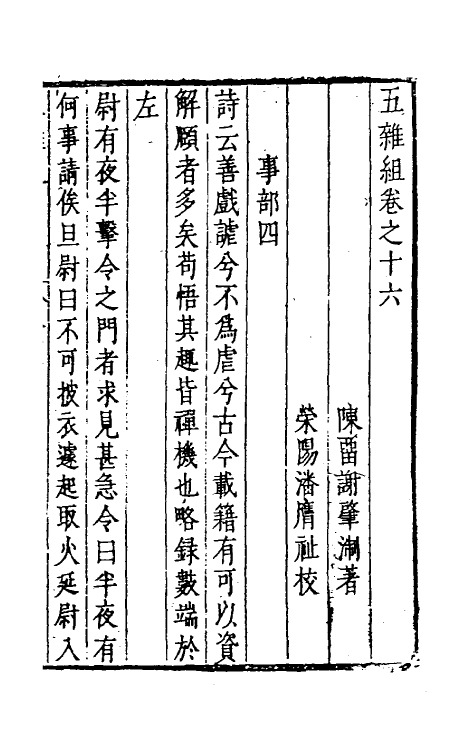 五雜組卷之十六
陳畱謝肇淛著
榮陽潘膺祉校
事部四
詩云善戲謔兮不爲虐兮古今載籍有可以資
解頤者多矣苟悟其趣皆禪機也略録數端於
左
尉有夜半擊令之門者求見甚急令曰半夜有
何事請俟旦尉曰不可披衣遽起取火延尉入